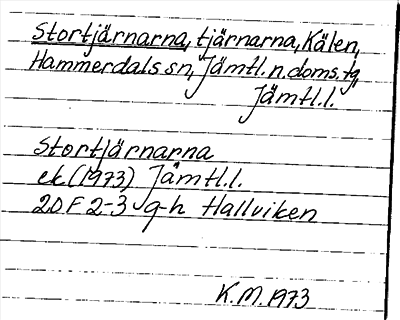 Stortjärnarna, tjärnarna, Kälen,
Hammerdals sn, Jämtl. n. doms. tg,
Jämtl. l.
Stortjärnarna
ek (1973) Jämtl. l.
20 F 2-3 g-h Hallviken
K. M. 1973